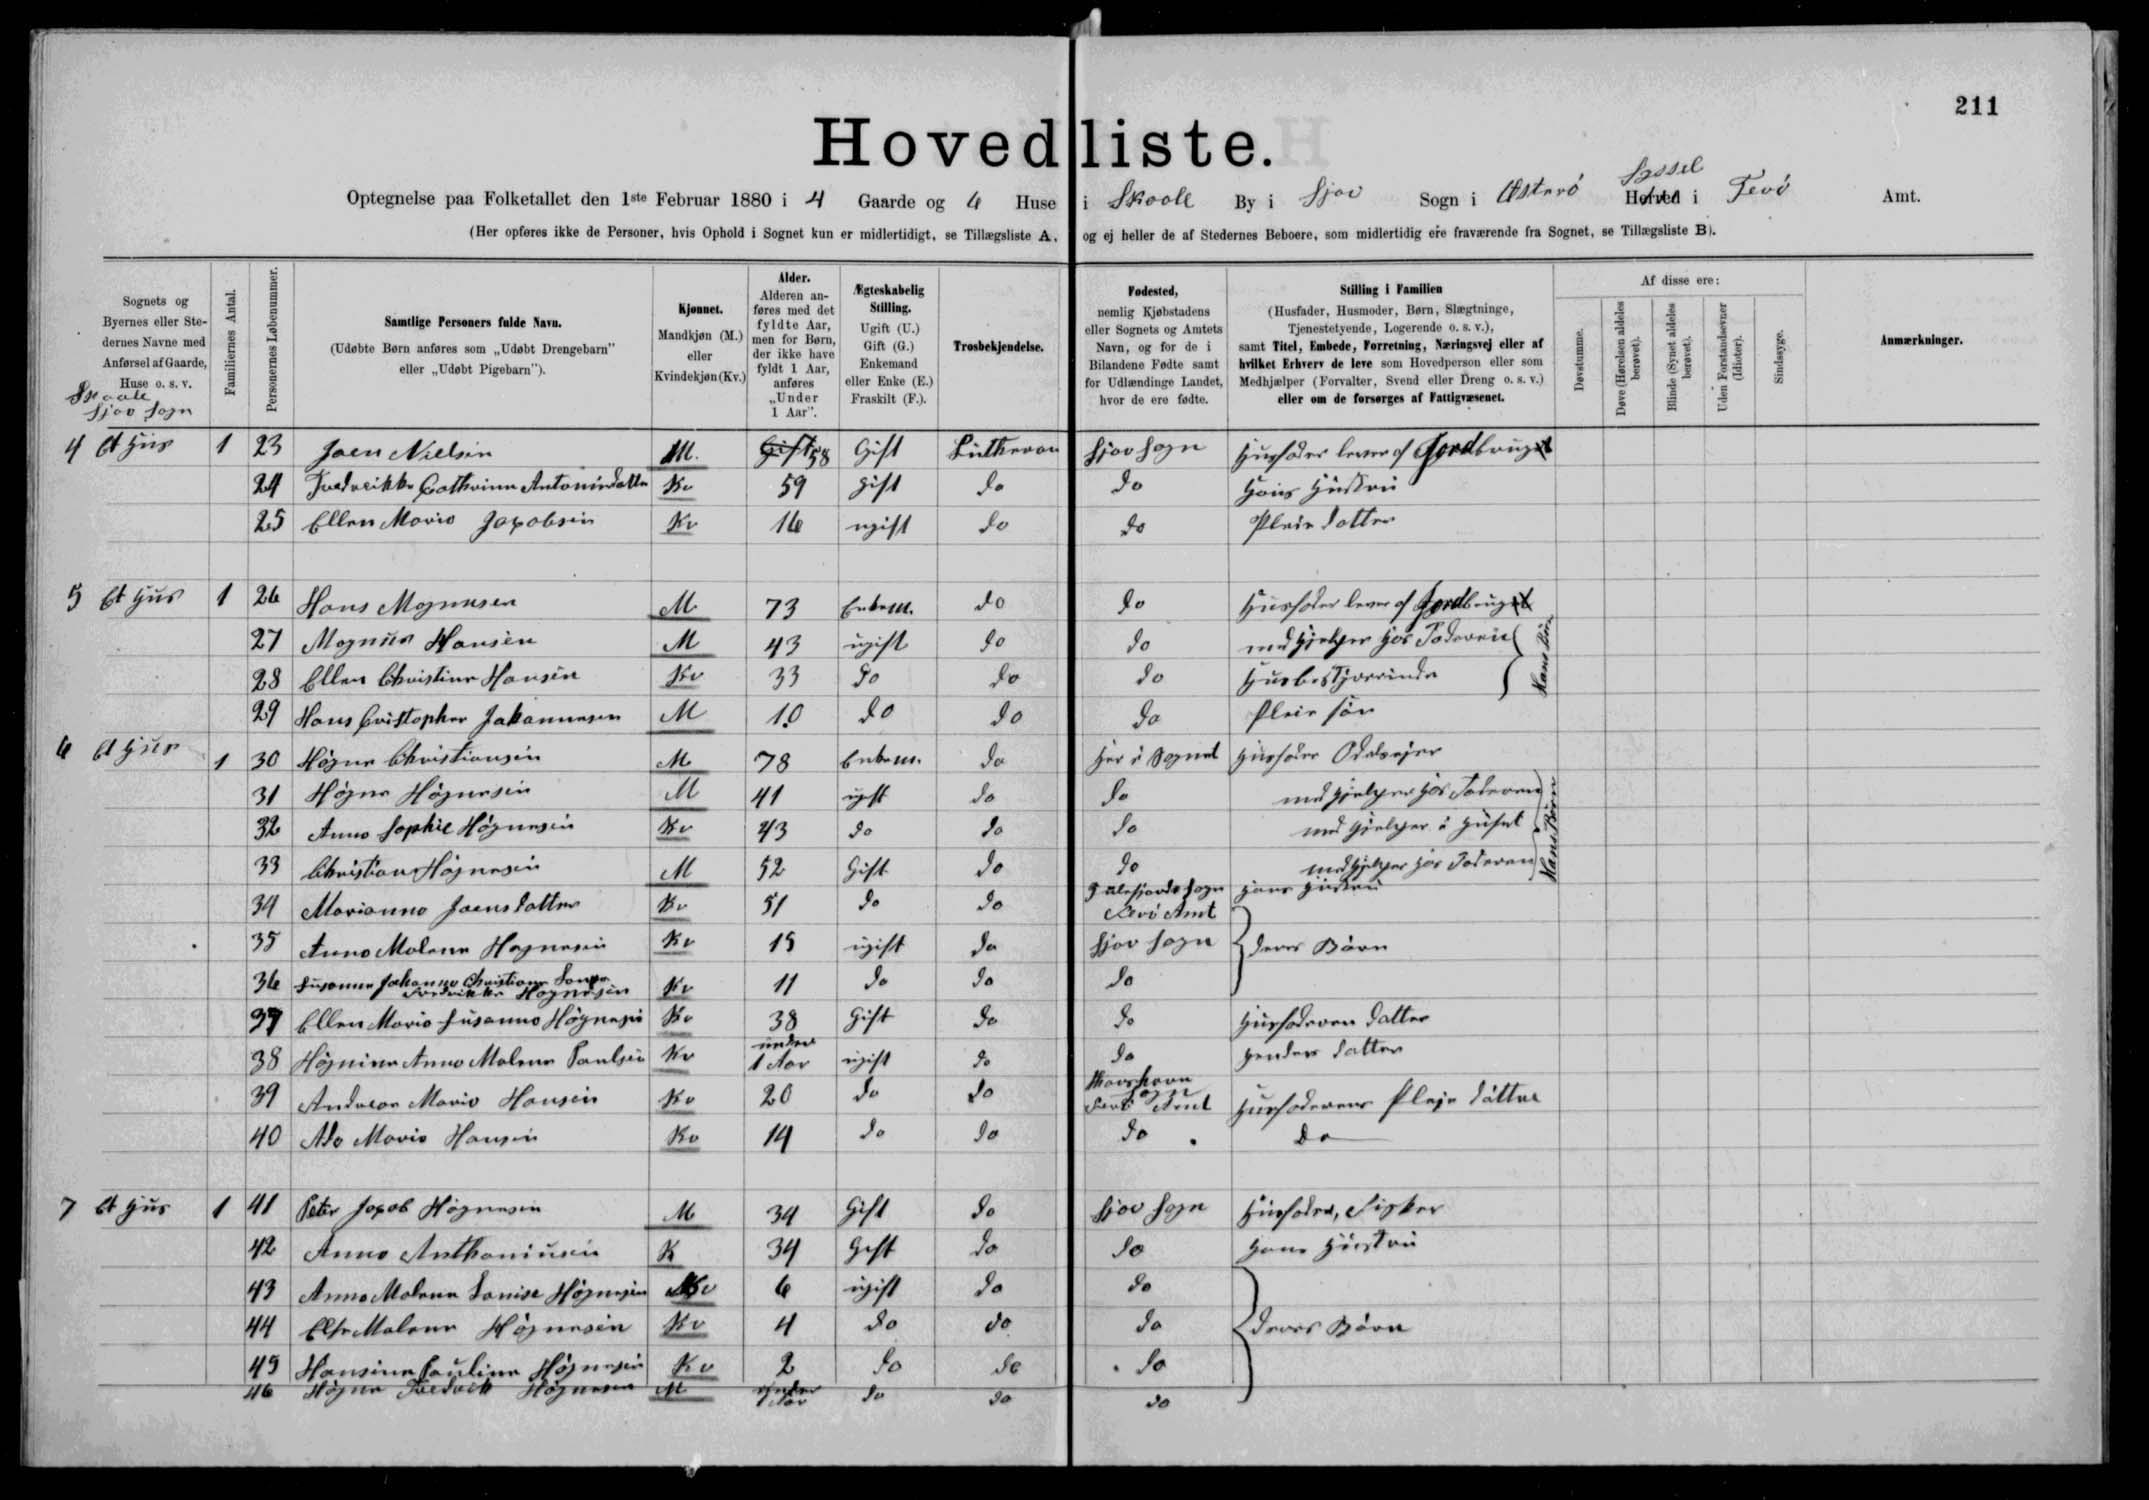 211
Hovedliste.
Optegnelse paa Folketallet den 1ste Februar 1880 i 4 Gaarde og 6 Huse i Skaale By i Sjov Sogn i Østerö Sÿssel Herred i Ferö Amt.
(Her opføres ikke de Personer, hvis Ophold i Sognet kun er midlertidigt, se Tillægsliste A, og ej heller de af Stedernes Beboere, som midlertidig ere fraværende fra Sognet, se Tillægsliste B).
Sognets og Byernes eller Stedernes Navne med Anførsel af Gaarde, Huse o. s. v.
Familiernes Antal.
Personernes Løbenummer.
Samtlige Personers fulde Navn.
(Udøbte Børn anføres som „Udøbt Drengebarn" eller „Udøbt Pigebarn").
Kjønnet.
Mandkjøn (M.) eller Kvindekjøn (Kv.)
Alder.
Alderen anføres med det fyldte Aar, men for Børn, der ikke have fyldt 1 Aar, anføres „Under 1 Aar".
Ægteskabelig Stilling.
Ugift (U.) Gift (G.) Enkemand eller Enke (E.) Fraskilt (F.).
Trosbekjendelse.
Fødested,
nemlig Kjøbstadens eller Sognets og Amtets Navn, og for de i Bilandene Fødte samt for Udlændinge Landet, hvor de ere fødte.
Stilling i Familien
(Husfader, Husmoder, Børn, Slægtninge, Tjenestetyende, Logerende o. s. v.), samt Titel, Embede, Forretning, Næringsvej eller af hvilket Erhverv de leve som Hovedperson eller som Medhjælper (Forvalter, Svend eller Dreng o. s. v.) eller om de forsørges af Fattigvæsenet.
Af disse ere:
Døvstumme.
Døve (Hørelsen aldeles berøvet).
Blinde (Synet aldeles berøvet).
Uden Forstandsevner (Idioter).
Sindssyge.
Anmærkninger.
Skaale
Sjov Sogn
4 Et Hüs 1 23 Joen Nielsen M. Gift 58 Gift Lutheran Sjov Sogn Husfader lever af Jordbruget
24 Fredrikke Cathrine Antonisdatter Kv 59 gift do do Hans Hüstru
25 Ellen Marie Jacobsen Kv 16 ugift do do Pleie datter
5 Et Hus 1 26 Hans Magnusen M 73 Enkem. do do Husfader lever af Jordbruget
27 Magnus Hansen M 43 ugift do do medhjelper hos Faderen
28 Ellen Christine Hansen Kv 33 do do do Husbestyrerinde
Hans Börn
29 Hans Cristopher Johannesen M 10 do do do Pleie sön
6 Et Hus 1 30 Högne Christiansen M 78 Enkem. do Her i Sognet Husfader Odelsejer
31 Högne Högnesen M 41 ugift do do medhjelper hos Faderen
32 Anna Sophie Högnesen Kv 43 do do do medhjelper i Huset
33 Christian Högnesen M 52 Gift do do medhjelper hos Faderen
Hans Börn
34 Marianna Joensdatter Kv 51 do do Sogn Ferö Amt Hans Hustru
35 Anna Malena Hognesen Kv 15 ugift do Sjov Sogn deres Börn
36 Susanna Johanna Christiane Fredrikke Hognesen Kv 11 do do do
37 Ellen Marie Susanna Högnesen Kv 38 Gift do do Husfaderen datter
38 Högnine Anna Malena Paulsen Kv under 1 Aar ugift do do Hendes datter
39 Andrea Marie Hansen Kv 20 do do Thorshavn Sogn Ferö Amt Husfaderens Pleje dätter
40 Ada Marie Hansen Kv 14 do do do do
7 Et Hus 1 41 Peter Jacob Högnesen M 34 Gift do Sjov Sogn Husfader, Fisker
42 Anna Anthoniusen K 34 Gift do do Hans Hustru
43 Anna Malena Louise Högnesen Kv 6 ugift do do
44 Else Malena Högnesen Kv 4 do do do deres Börn
45 Hansina Paulina Högnesen Kv 2 do do do
46 Högne Fredrik Högnesen M under 1 Aar do do do